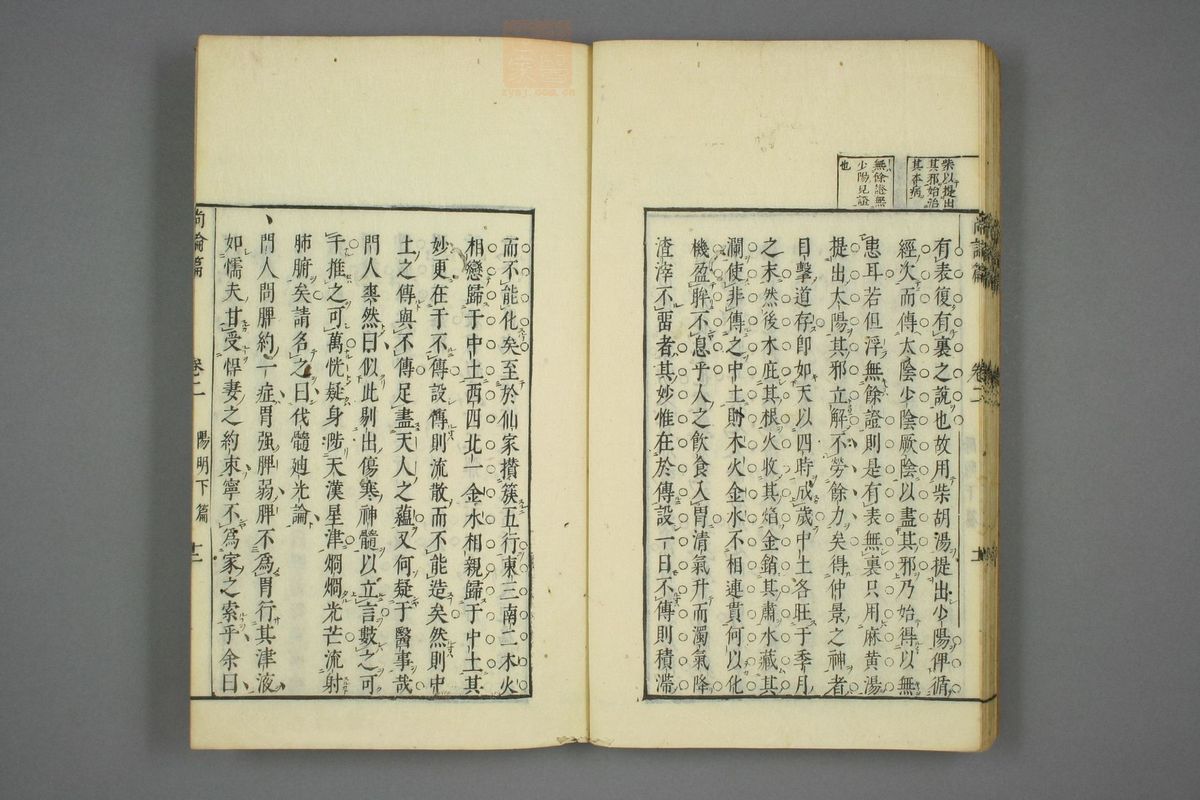 柴以提出
其邪始治
其本病
無餘證無
少陽見證
也
有表復有裏之說也故用柴胡湯提出少陽俾循
經次而傳太陰少陰厥陰以盡其邪乃始得以無
患耳若但浮無餘證則是有表無裏只用麻黄湯
提出太陽其邪立解不勞餘力矣得仲景之神者
目擊道存卽如天以四時成歲中土各旺于季月
之末然後木庇其根火收其焰金銷其肅水藏其
瀾使非傳之中土則木火金水不相連貫何以化
機盈眸不息乎人之飲食入胃清氣升而濁氣降
渣滓不畱者其妙惟在於傳設一日不傳則積滯
尚論篇 卷二 十一
而不能化矣至於仙家攢簇五行東三南二木火
相戀歸于中土西四北一金水相親歸于中土其
妙更在于不傳設傳則流散而不能造矣然則中
土之傳與不傳足盡天人之蘊又何疑于醫事哉
門人喪然曰似此剔出傷寒神髓以立言數之可
千推之可萬恍疑身陟天漢星津烱烱光芒流射
肺腑矣請名之曰伐髓廸光論
門人問脾約一症胃强脾弱脾不爲胃行其津液
如懦夫甘受悍妻之約束寧不爲家之索乎余曰
尚論篇 卷二 陽明下篇 十二
zysj.com.cn